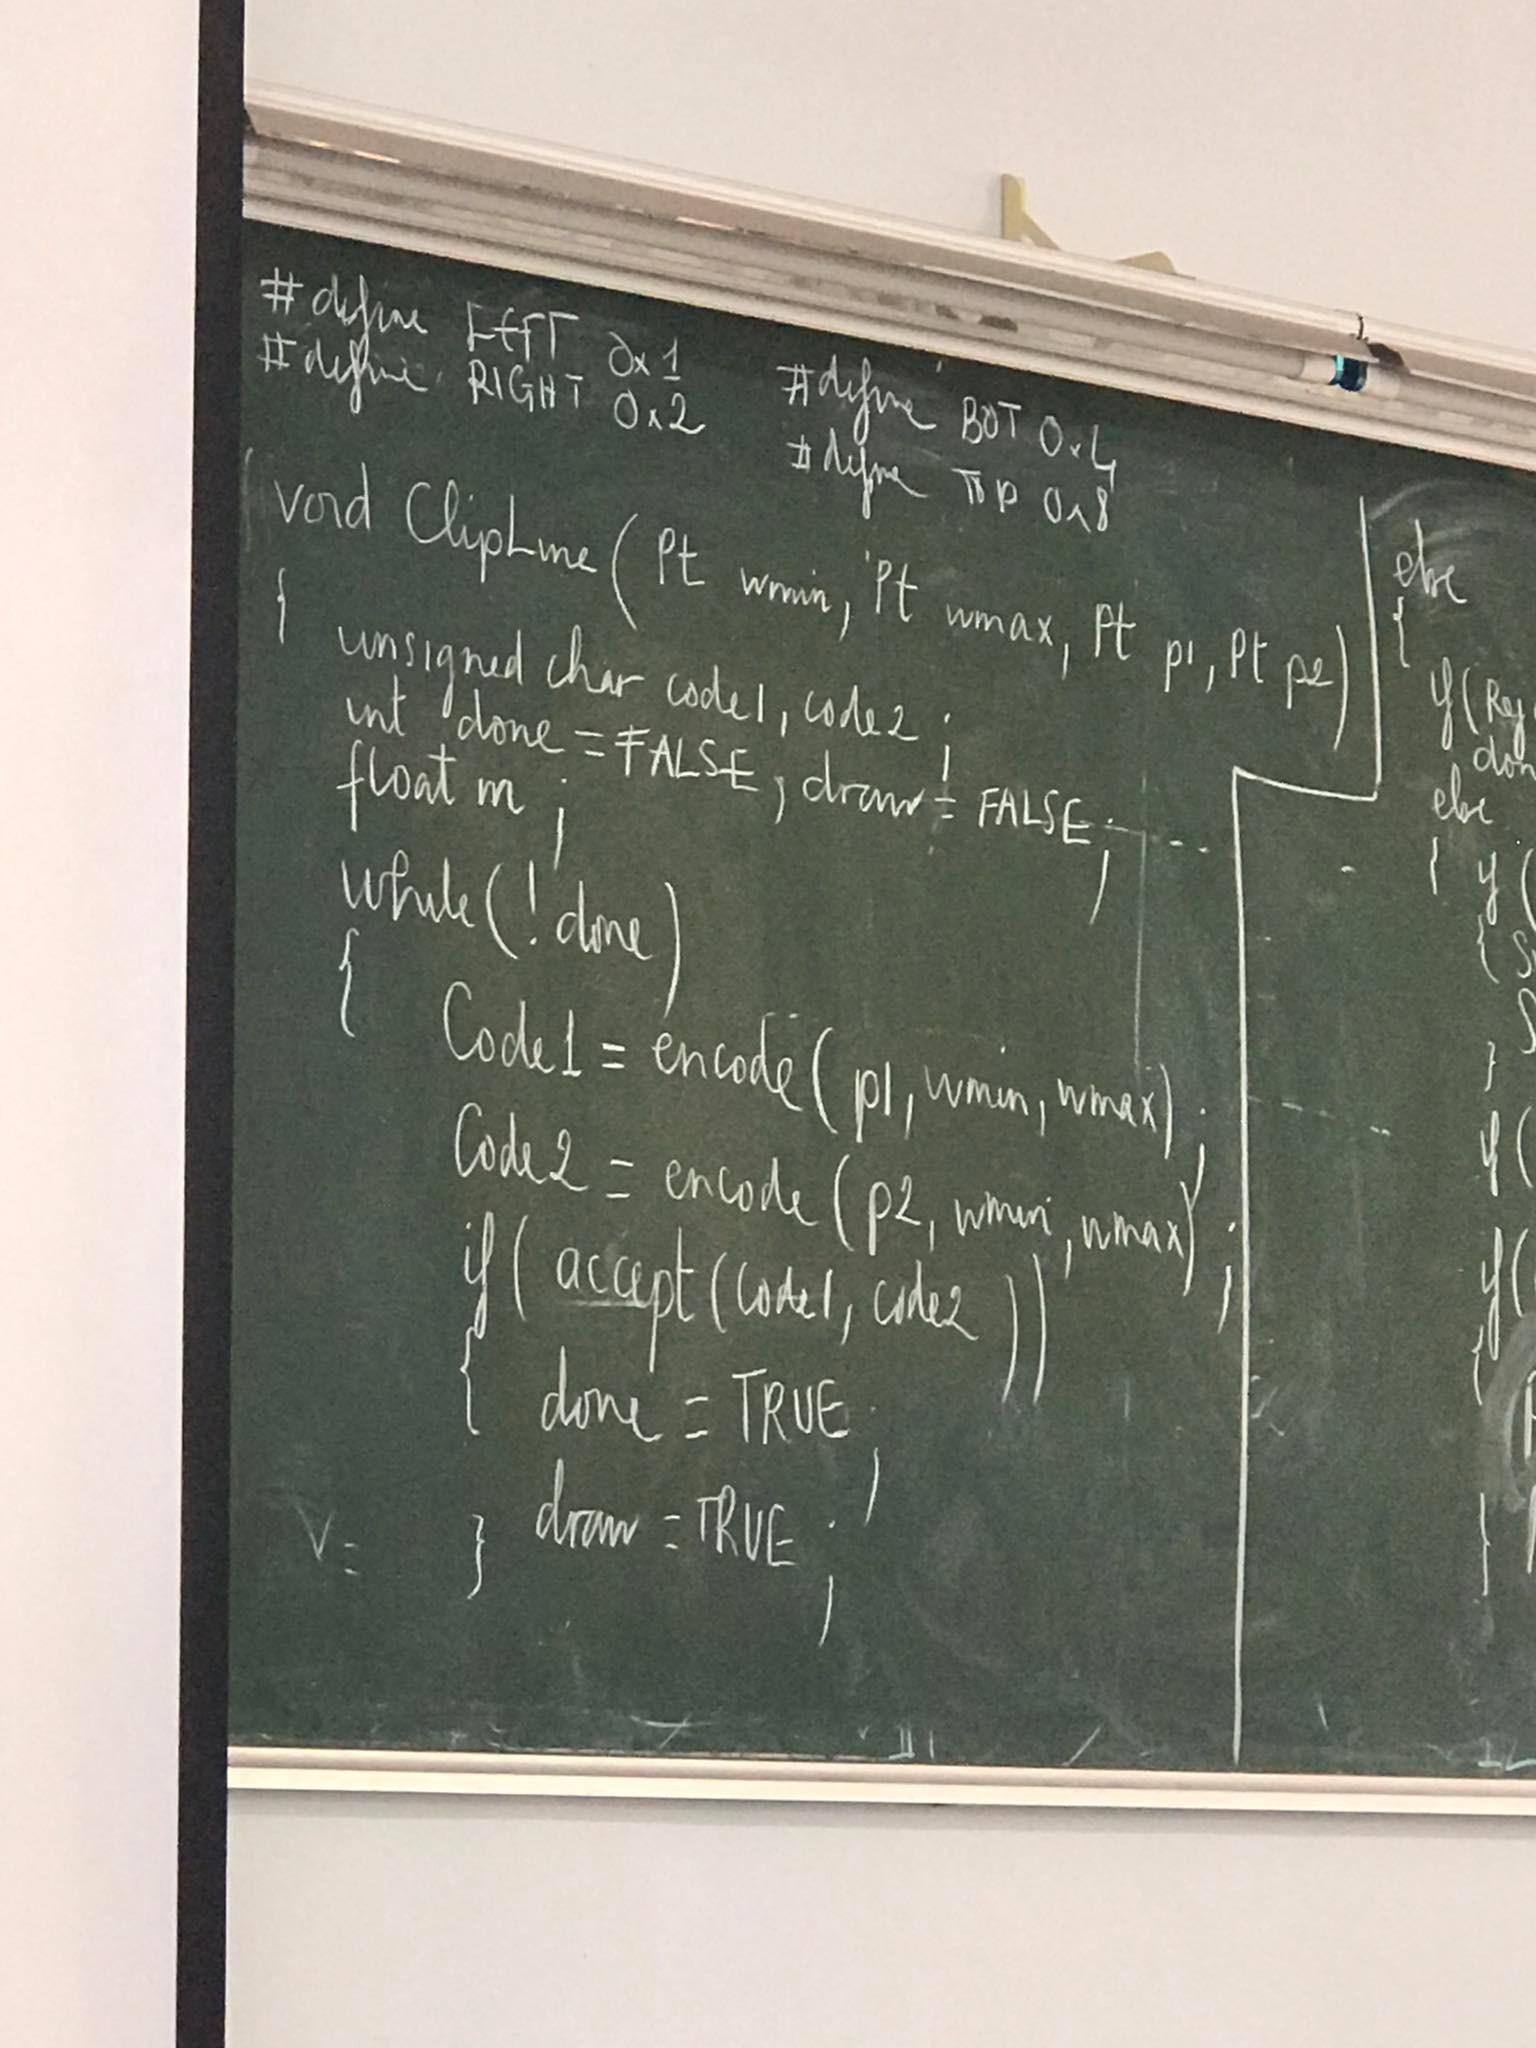 #define LEFT 0x1
#define RIGHT 0x2
#define BOT 0x4
#define TOP 0x8
void ClipLine(Pt wmin, Pt wmax, Pt p1, Pt p2)
{
unsigned char code1, code2;
int done = FALSE; draw = FALSE;
float m;
while(!done)
{
Code1 = encode(p1, wmin, wmax);
Code2 = encode(p2, wmin, wmax);
if(accept(code1, code2))
{
done = TRUE;
draw = TRUE;
}
V=
else
{
if(Rej
don
else
{ if(
{ S
S
}
if(
if(
{
}